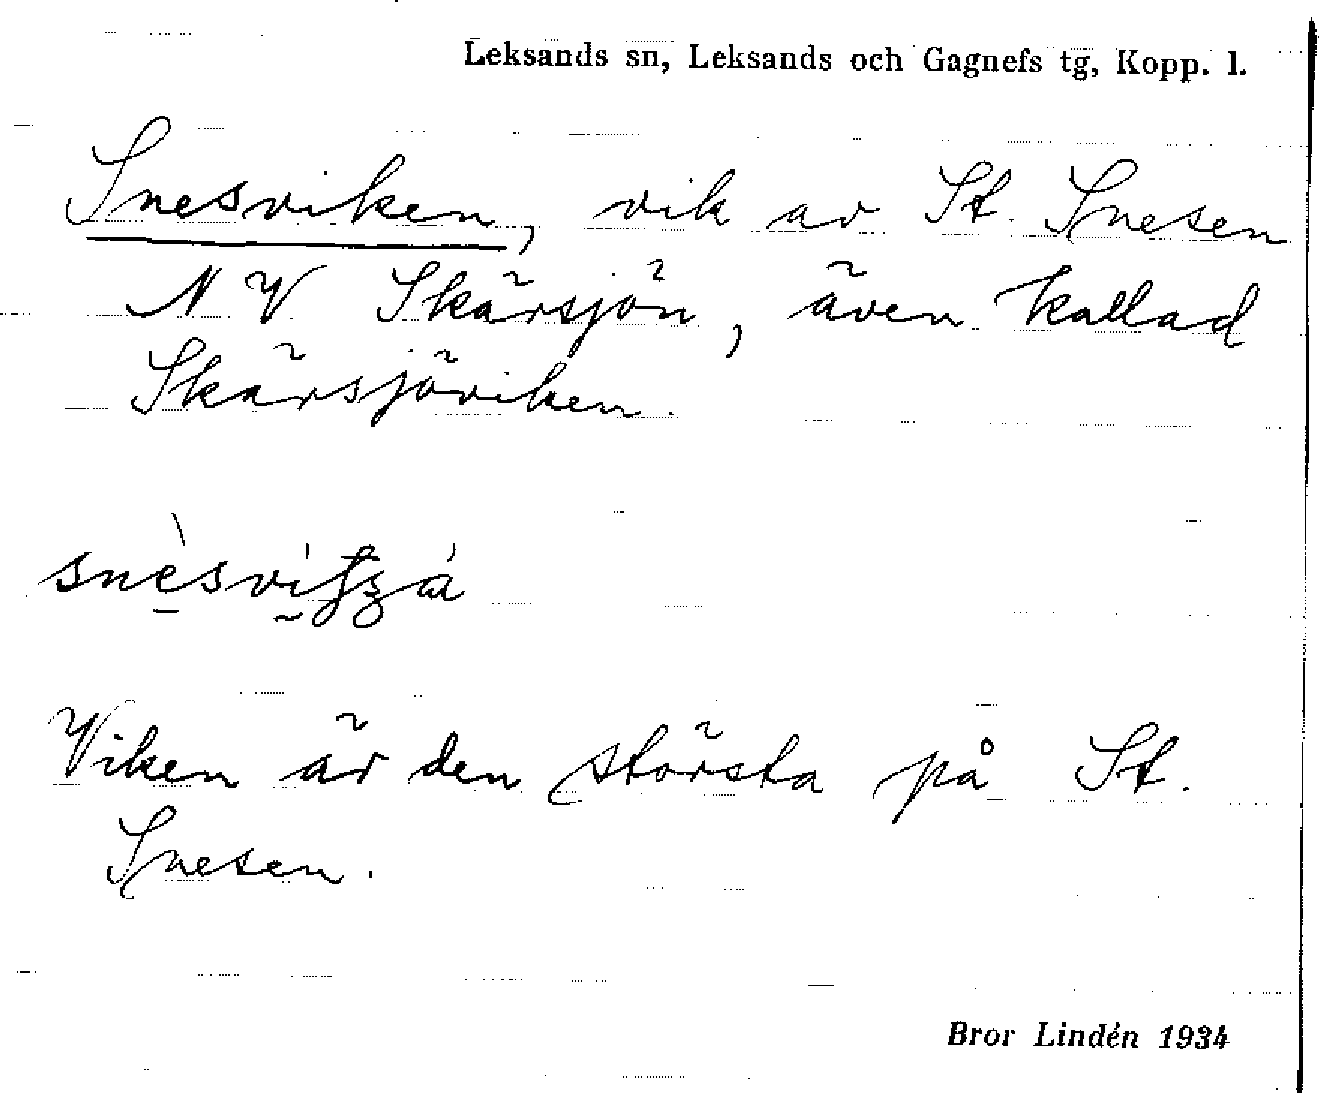 Leksands sn, Leksands och Gagnefs tg, Kopp. l.
Snesviken, vik av St. Snesen
N V Skärsjön, även kallad
Skärsjöviken.
Viken är den största på St.
Snesen.
Bror Lindén 1934